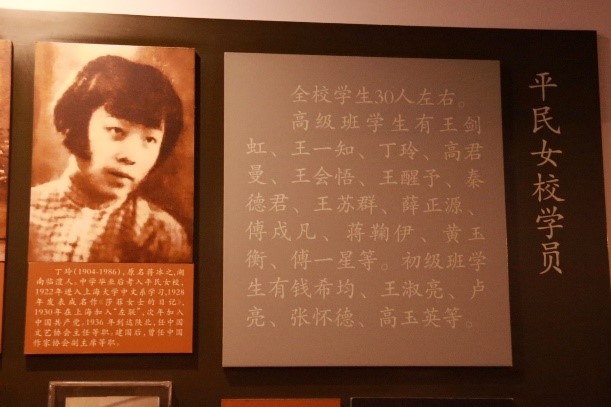 平民女校学员
全校学生30人左右。
高级班学生有王剑
虹、王一知、丁玲、高君
曼、王会悟、王醒予、秦
德君、王苏群、薛正源、
傅戍凡、蒋鞠伊、黄玉
衡、傅一星等。初级班学
生有钱希均、王淑亮、卢
亮、张怀德、高玉英等。
丁玲(1904-1986)，原名蒋冰之，湖
南临澧人。中学毕业后考入平民女校，
1922年进入上海大学中文系学习，1928
年发表成名作《莎菲女士的日记》。
1930年在上海加入"左联"，次年加入
中国共产党，1936年到达陕北，任中国
文艺协会主任等职。建国后，曾任中国
作家协会副主席等职。